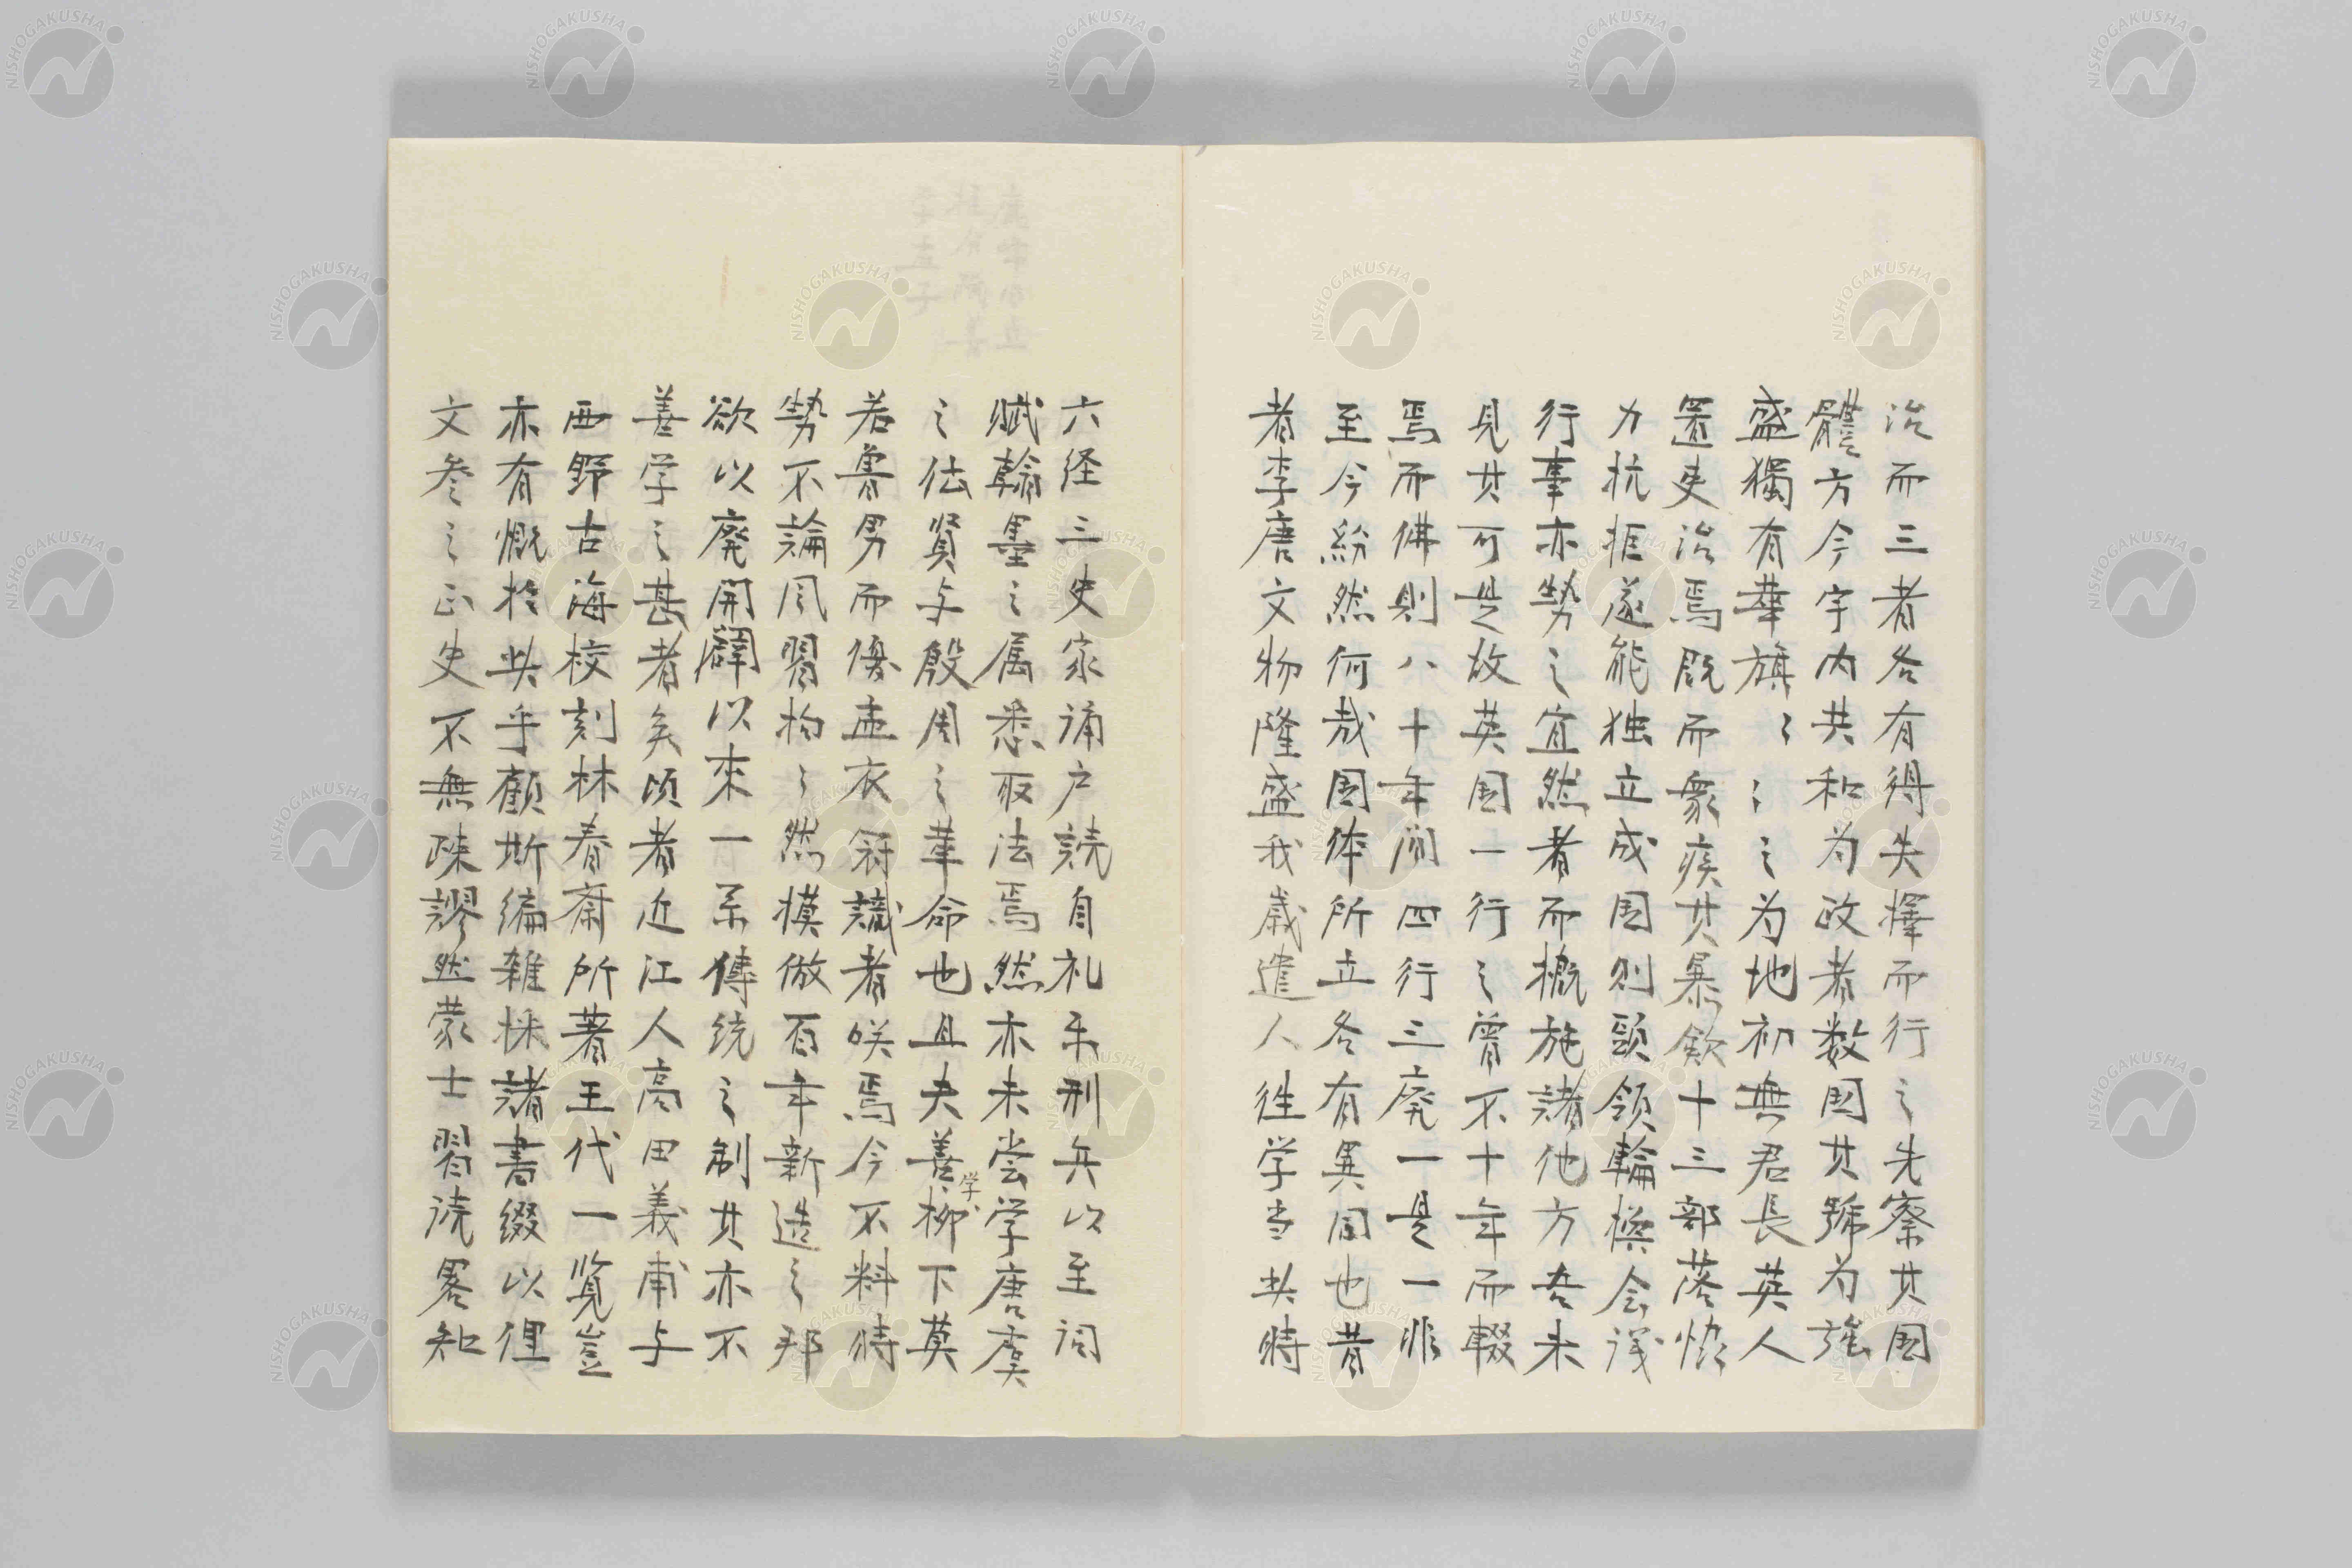 治而三者各有得失擇而行之先察其国
體方今宇内共和为政者数国其號为強
盛獨有華旗〻〻之为地初無君長英人
置吏治焉既而衆疾其暴斂十三部落憤
力抗拒遂能独立成国則頭領輪換会議
行事亦勢之宜然者而概施諸他方吾未
見其可是故英国一行之曾不十年而輟
焉而佛則八十年间四行三廃一是一非
至今紛然何哉国体所立各有異同也昔
者李唐文物隆盛我歳遣人往学当其時
六经三史家誦户読自礼乐刑兵以至词
賦翰墨之属悉取法焉然亦未尝学唐虞
之伝賢与殷周之革命也且夫善学柳下莫
若魯男而優孟衣冠識者咲焉今不料時
勢不論风習拘〻然模倣百年新造之邦
欲以廃開闢以來一系傳统之制其亦不
善学之甚者矣頃者近江人高田義甫与
西野古海校刻林春斎所著王代一覧豈
亦有慨於此乎顧斯编雑採諸書缀以俚
文参之正史不無疎謬然蒙士習读畧知